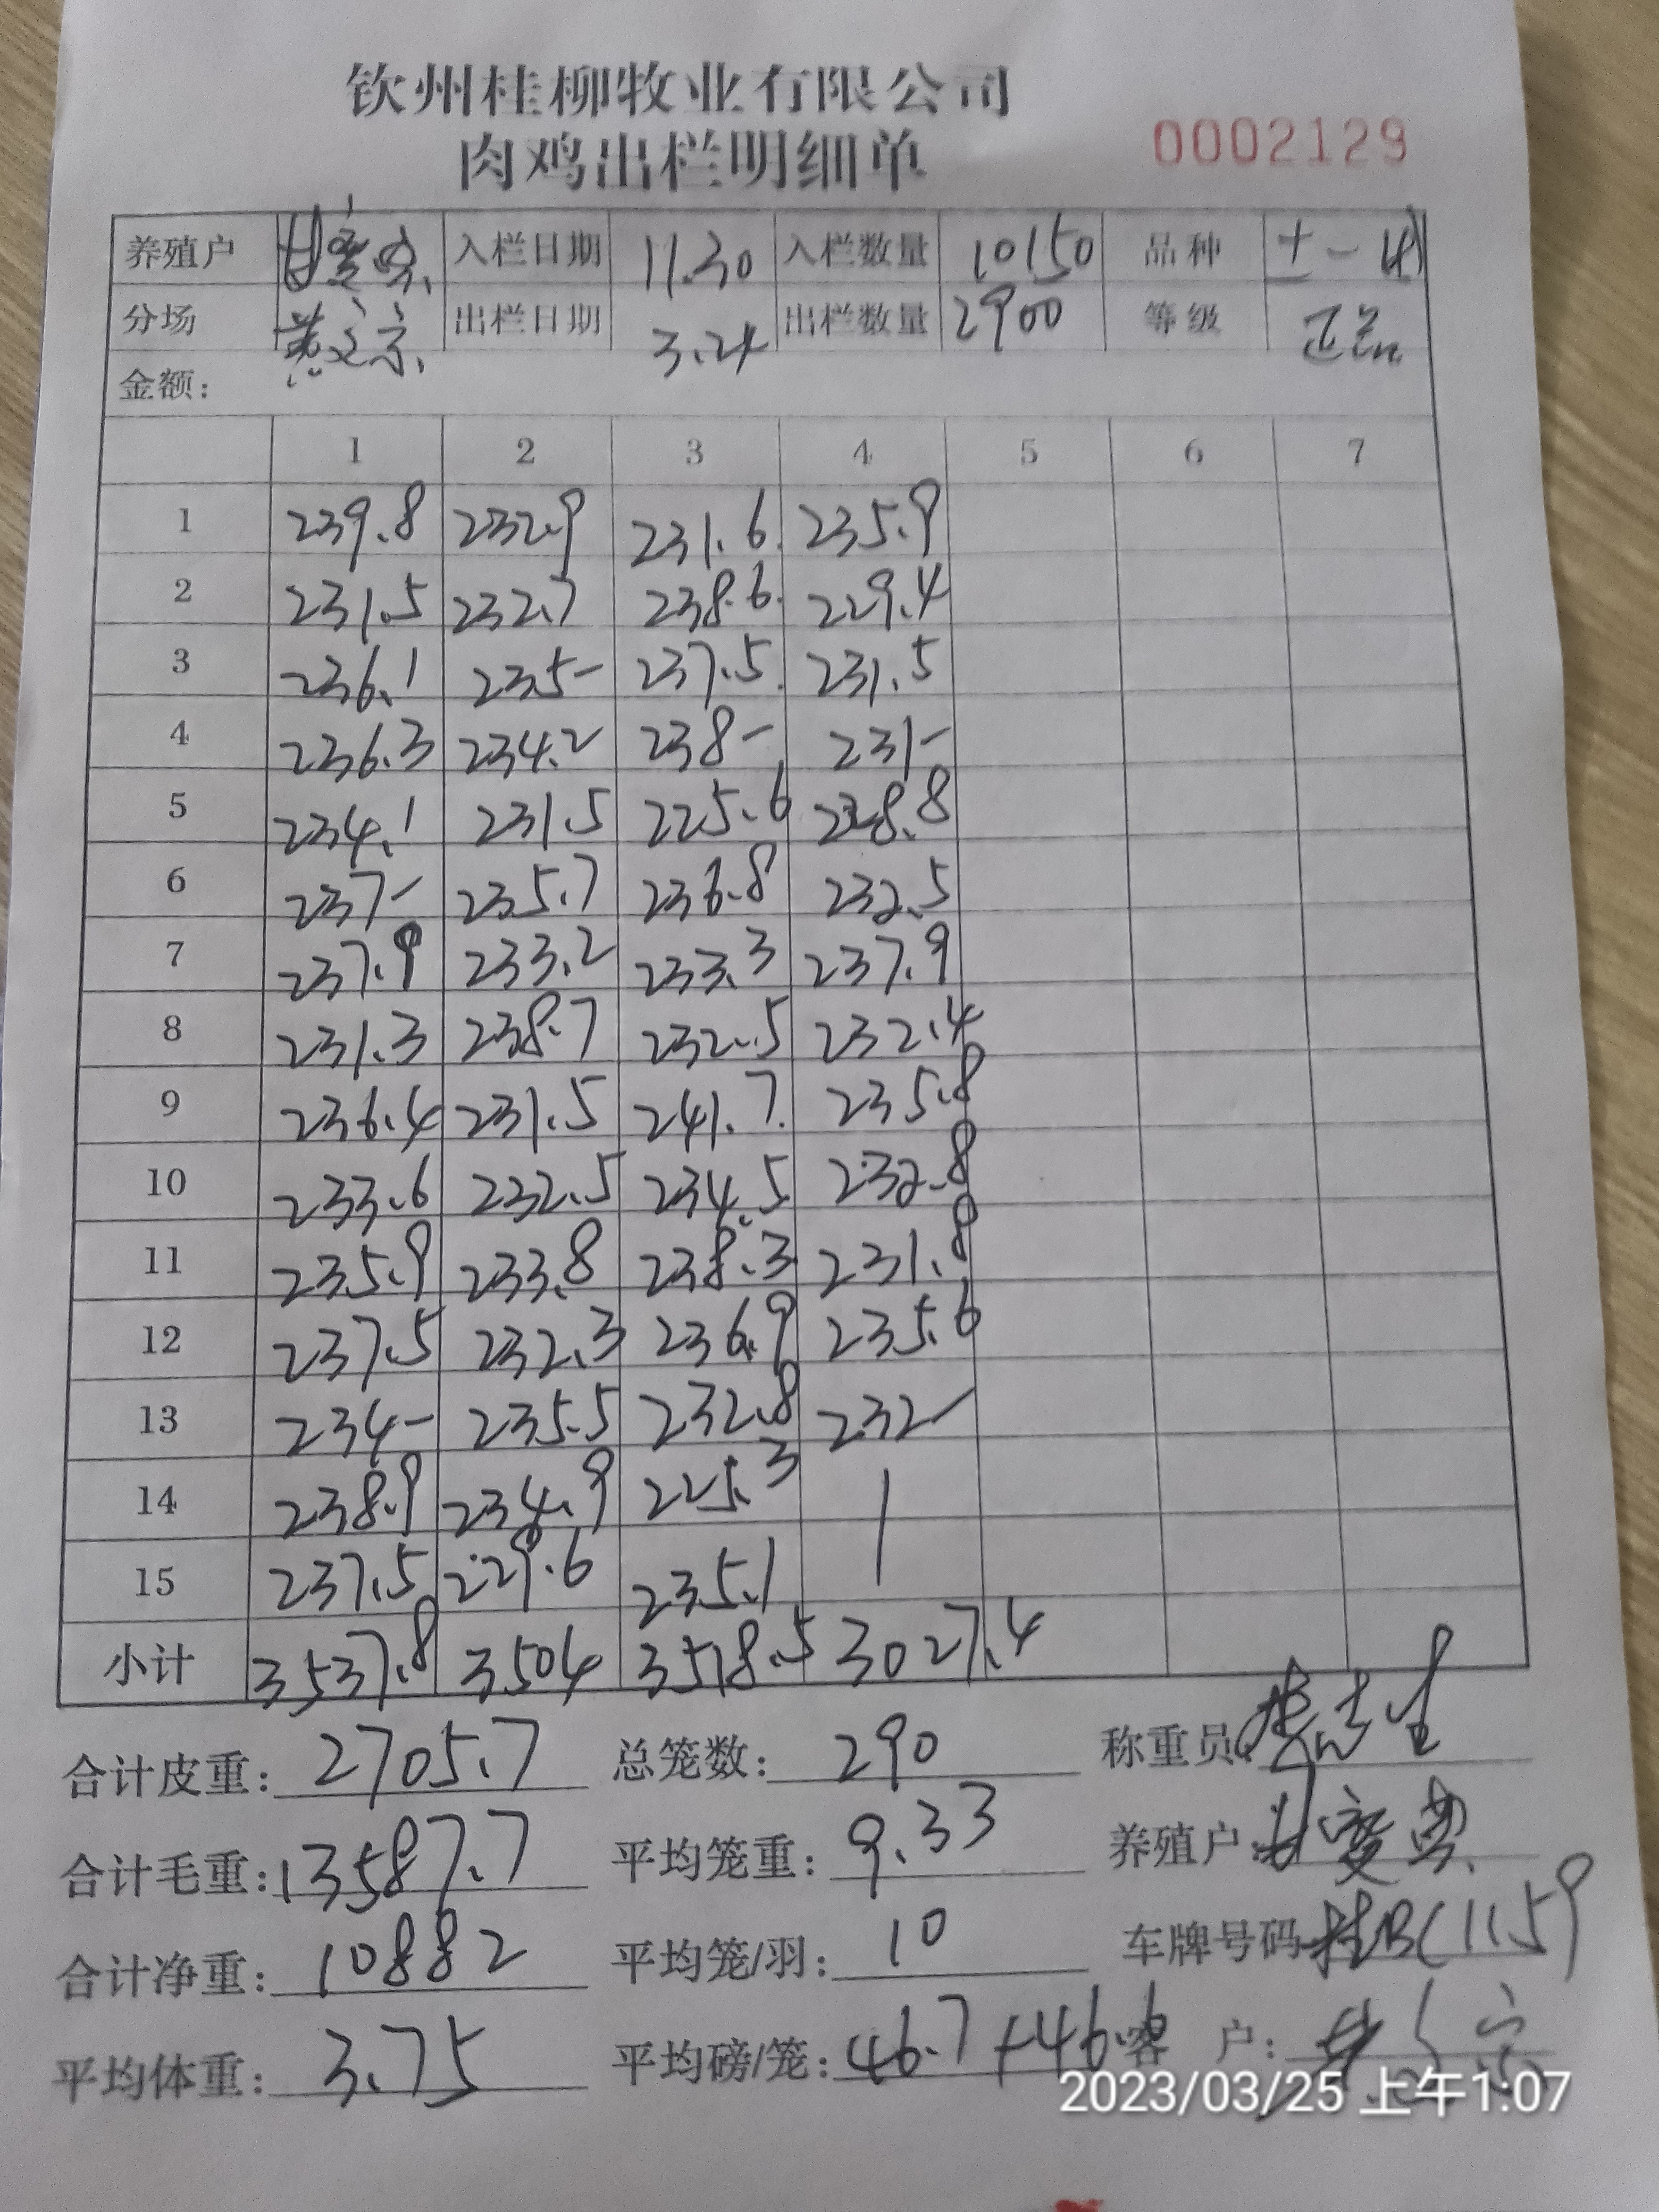 钦州桂柳牧业有限公司
肉鸡出栏明细单 0002129
养殖户 入栏日期 11.30 入栏数量 10150 品种 土一
分场 出栏日期 3.24 出栏数量 2900 等级 正品
金额:
1 2 3 4 5 6 7
1 239.8 232.9 231.6 235.9
2 231.5 232.7 238.6 229.4
3 236.1 235- 237.5 231.5
4 236.3 234.2 238- 231-
5 234.1 231.5 225.6 228.8
6 237- 235.7 236.8 232.5
7 237.9 233.2 233.3 237.9
8 231.3 238.7 232.5 232.4
9 236.4 231.5 241.7 235.8
10 233.6 232.5 234.5 232.8
11 235.9 233.8 238.3 231.8
12 237.5 232.3 236.9 235.6
13 234- 235.5 232.8 232-
14 238.9 234.9 225.3
15 237.5 229.6 235.1
小计 3537.8 3504 3518.5 3027.4
合计皮重: 2705.7 总笼数: 290 称重员:
合计毛重: 13587.7 平均笼重: 9.33 养殖户:
合计净重: 10882 平均笼/羽: 10 车牌号码 桂BC1159
平均体重: 3.75 平均磅/笼: 46.7+46.6 客 户:
2023/03/25 上午1:07